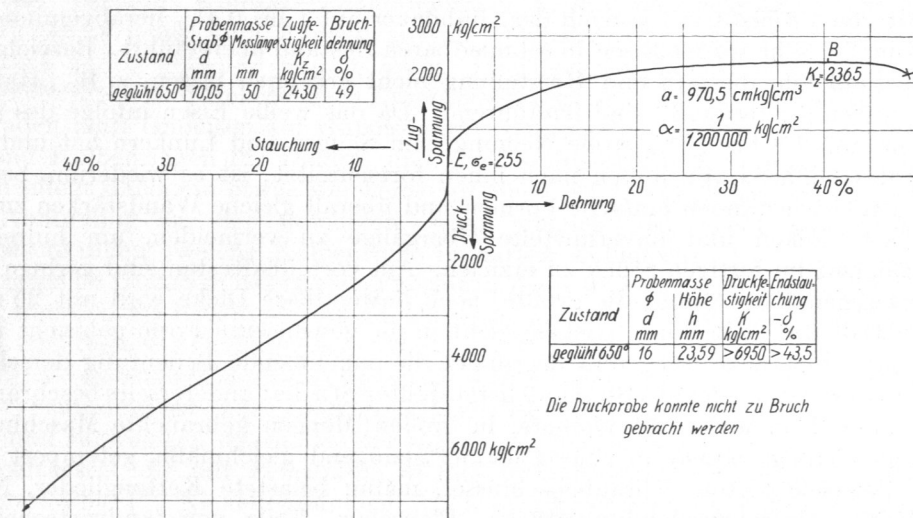 Zustand
Probenmasse
Stab ϕ d mm
Messlänge l mm
Zugfestigkeit K_z kg/cm²
Bruchdehnung δ %
geglüht 650° 10,05 50 2430 49
3000 kg/cm²
2000
B
K_z=2365
a = 970,5 cmkg/cm³
α = 1/1200000 kg/cm²
Zug-Spannung
Stauchung
40% 30 20 10
E, σ_e=255
10 20 30 40%
Druck-Spannung
Dehnung
2000
4000
6000 kg/cm²
Zustand
Probenmasse
ϕ d mm
Höhe h mm
Druckfestigkeit K kg/cm²
Endstauchung -δ %
geglüht 650° 16 23,59 >6950 >43,5
Die Druckprobe konnte nicht zu Bruch
gebracht werden